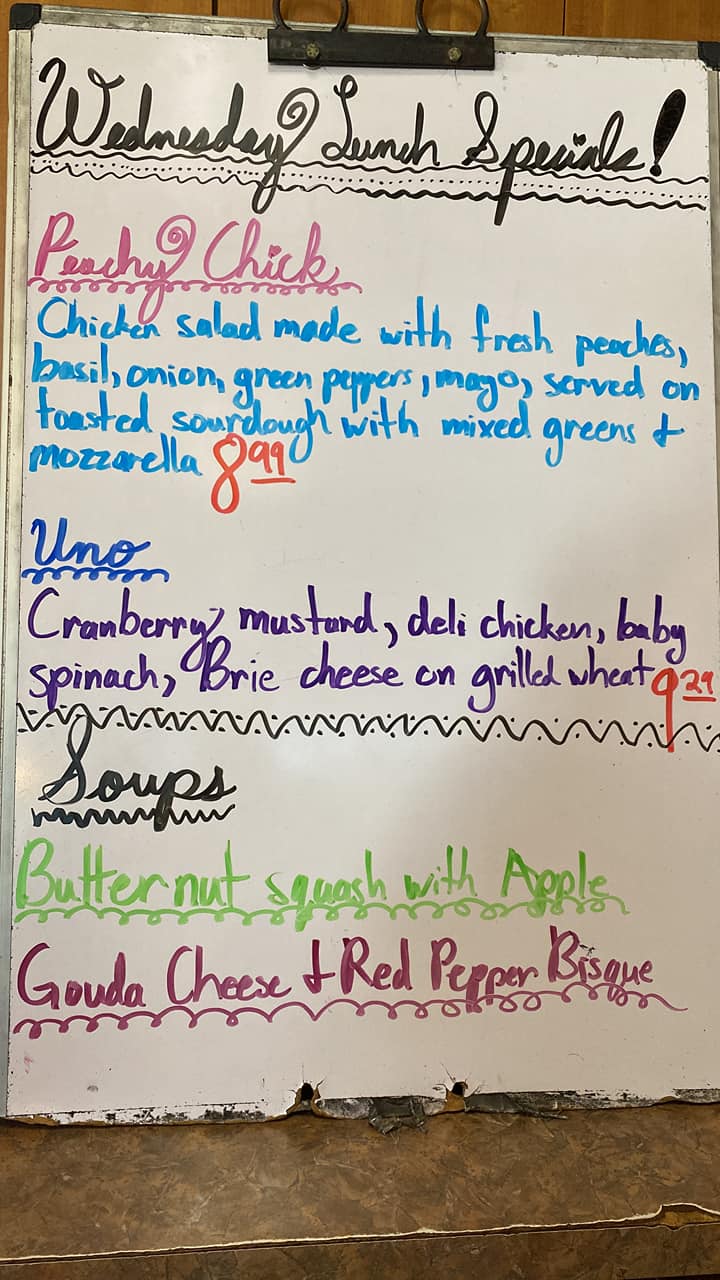 Wednesday Lunch Specials!
Peachy Chick
Chicken salad made with fresh peaches,
basil, onion, green peppers, mayo, served on
toasted sourdough with mixed greens +
mozzarella 8.99
Uno
Cranberry mustard, deli chicken, baby
spinach, Brie cheese on grilled wheat 9.29
Soups
Butternut squash with Apple
Gouda Cheese + Red Pepper Bisque